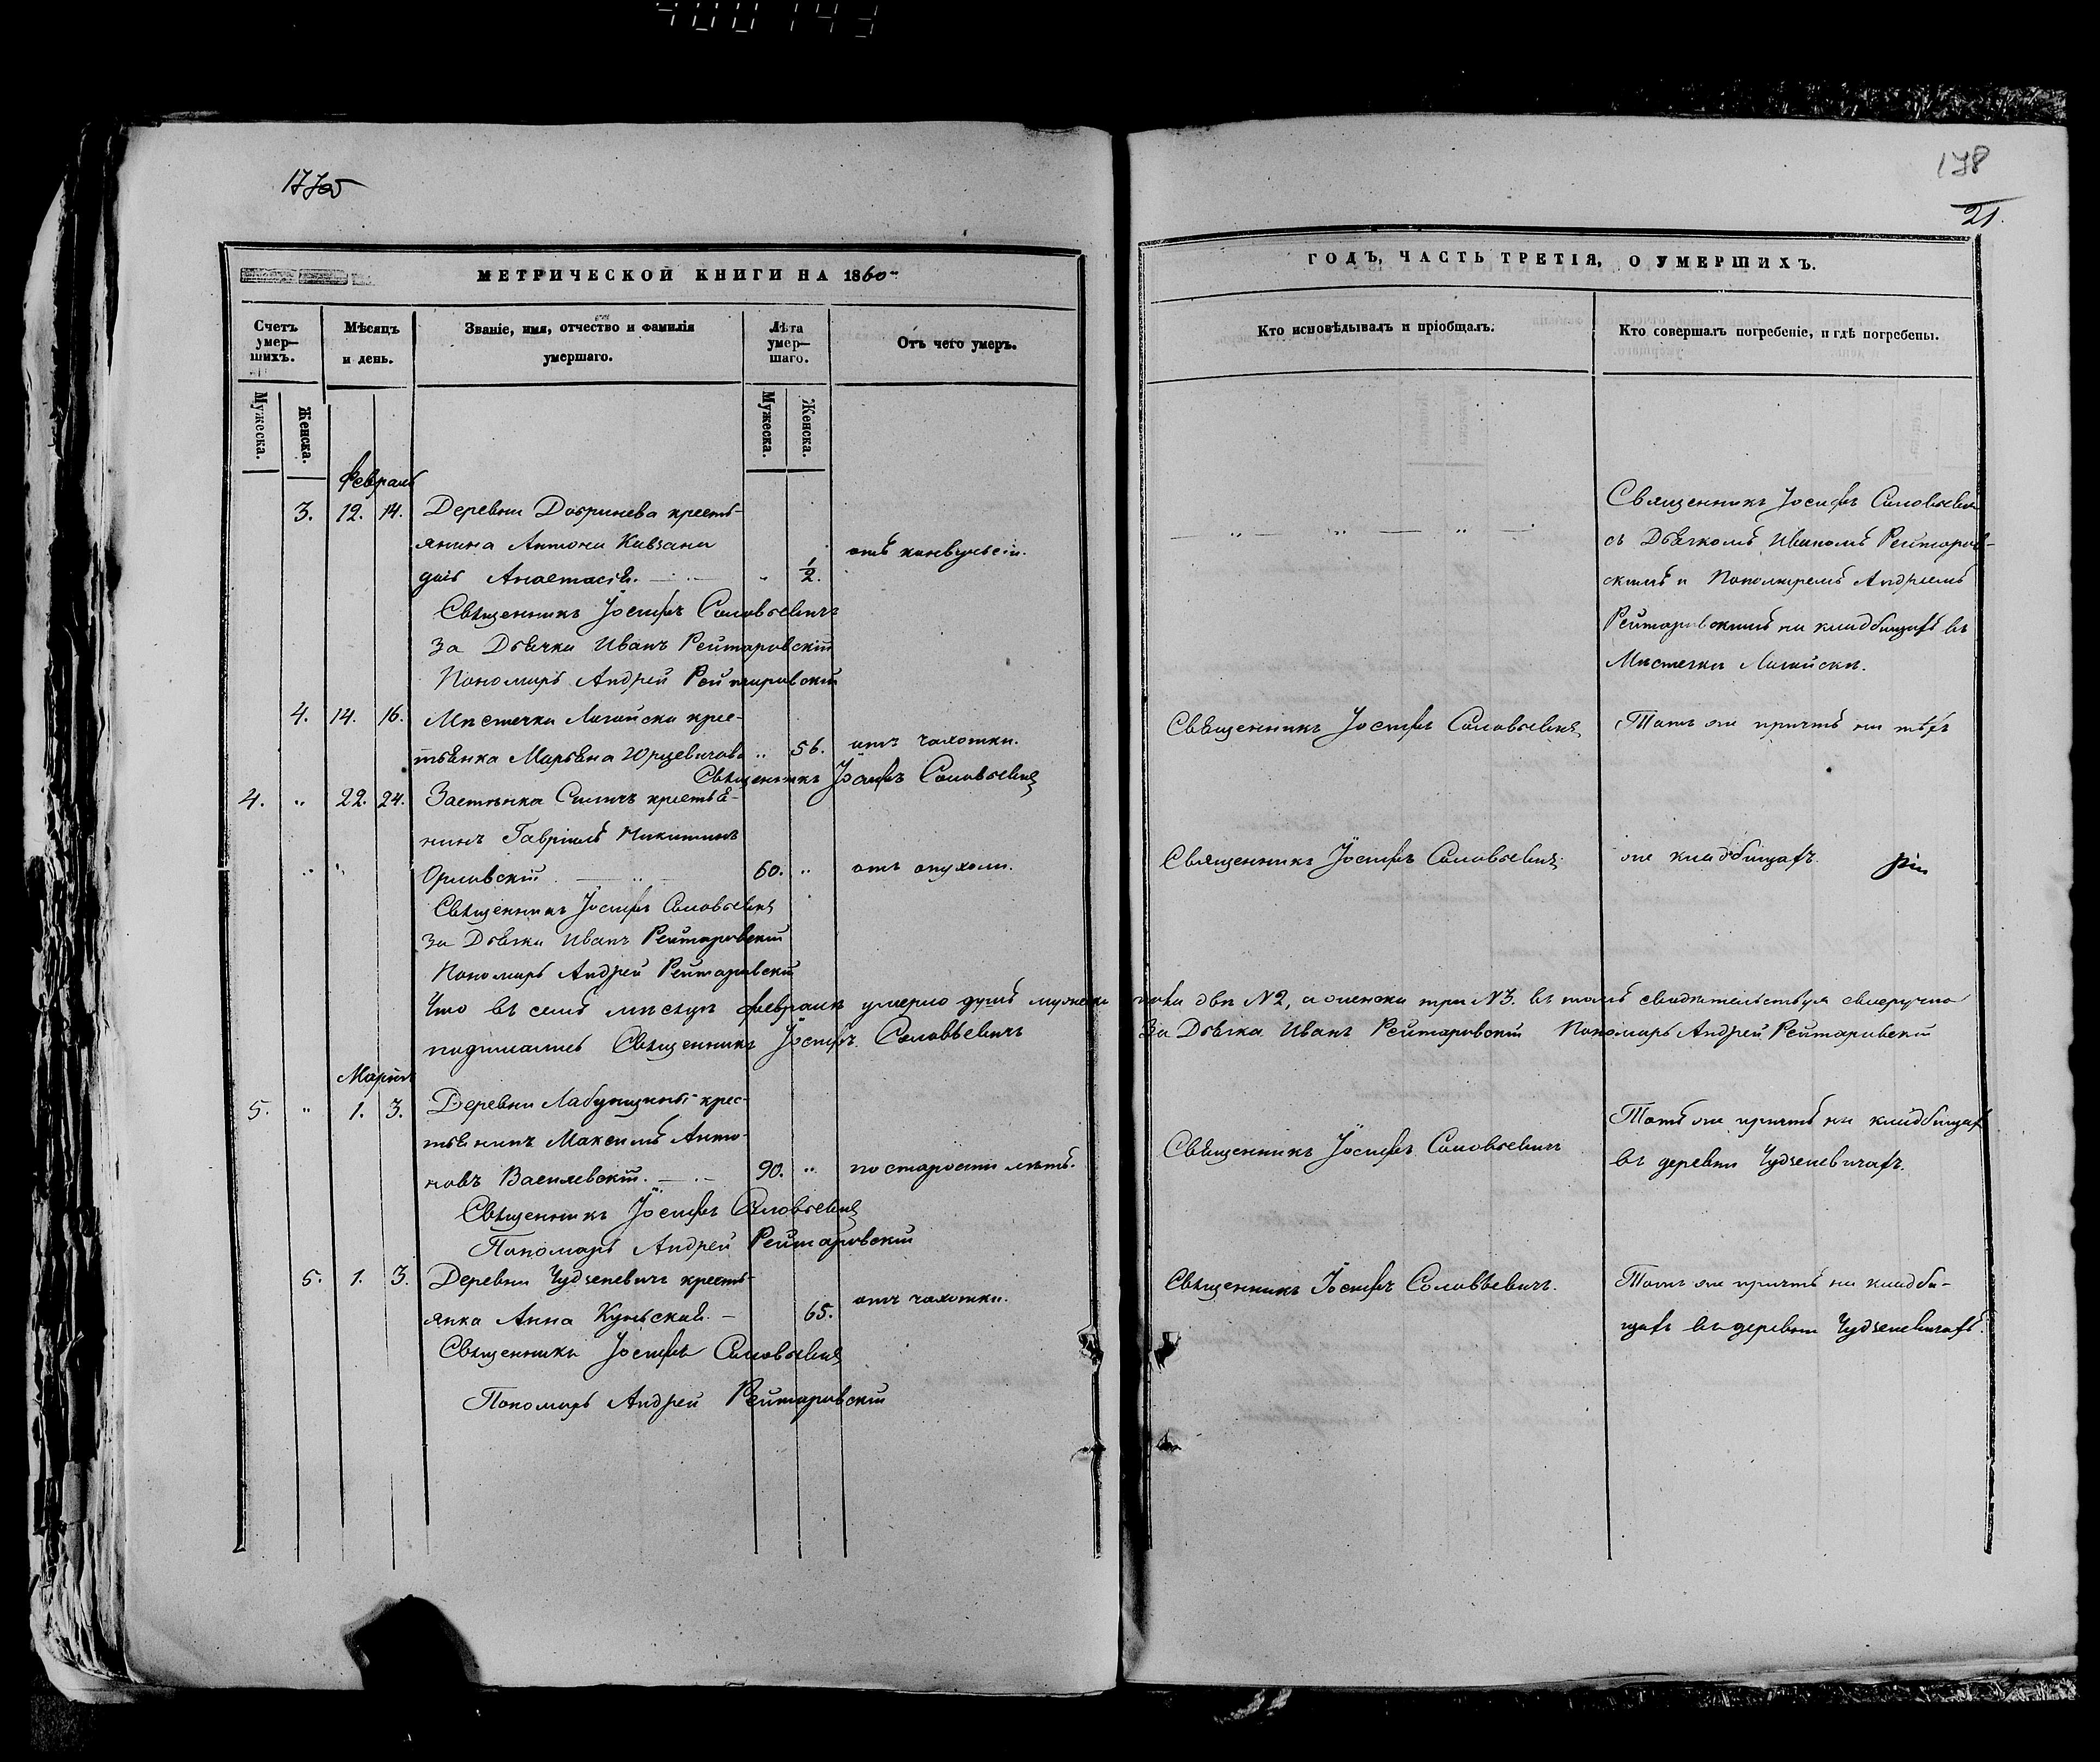 400143
177об
178
21.
МЕТРИЧЕСКОЙ КНИГИ НА 1860
ГОДЪ, ЧАСТЬ ТРЕТІЯ, О УМЕРШИХЪ.
Счетъ умер-шихъ.
Мѣсяцъ и день.
Званіе, имя, отчество и фамилія умершаго.
Лѣта умер-шаго.
Отъ чего умеръ.
Кто исповѣдывалъ и пріобщалъ.
Кто совершалъ погребеніе, и гдѣ погребены.
Мужеска.
Женска.
Мужеска.
Женска.
Февраль
3. 12. 14. Деревни Добринева кресть-
янина Антона Кавзана
дочь Анастасія. „ 1/2. отъ конвульсіи.
Священникъ Іосифъ Соловьевичъ
За Дьячка Иванъ Рейтаровскій
Пономарь Андрей Рейтаровскій
Священникъ Іосифъ Соловьевичъ
съ Дьячкомъ Иваномъ Рейтаров-
скимъ и Пономаремъ Андреемъ
Рейтаровскимъ на кладбищахъ въ
Мѣстечкѣ Логойскѣ.
4. 14. 16. Мѣстечка Логойска крес-
тьянка Марьяна Юрцевичова „ 56. отъ чахотки.
Священникъ Іосифъ Соловьевичъ
Священникъ Іосифъ Соловьевичъ
Тотъ же причтъ на тѣхъ
4. „ 22. 24. Застѣнка Силичъ крестья-
нинъ Гавріилъ Никитинъ
Орловскій 60. „ отъ опухоли.
Священникъ Іосифъ Соловьевичъ
же кладбищахъ.
Священникъ Іосифъ Соловьевичъ
За Дьячка Иванъ Рейтаровскій
Пономарь Андрей Рейтаровскій
Что въ семъ мѣсяцѣ февралѣ умерло душъ мужеска пола двѣ N2, а женска три N3. въ томъ свидѣтельствуя своеручно
подписались Священникъ Іосифъ Соловьевичъ За Дьячка Иванъ Рейтаровскій Пономарь Андрей Рейтаровскій
Мартъ
5. „ 1. 3. Деревни Лабунщины крес-
тьянинъ Максимъ Анто-
новъ Василевскій. 90. „ по старости лѣтъ.
Священникъ Іосифъ Соловьевичъ
Тотъ же причтъ на кладбищахъ
въ деревни Чудзеневичахъ.
Священникъ Іосифъ Соловьевичъ
Пономарь Андрей Рейтаровскій
5. 1. 3. Деревни Чудзеневичъ кресть-
янка Анна Кульская. 65. отъ чахотки.
Священникъ Іосифъ Соловьевичъ.
Тотъ же причтъ на кладби-
щахъ въ деревни Чудзеневичахъ.
Священникъ Іосифъ Соловьевичъ
Пономарь Андрей Рейтаровскій